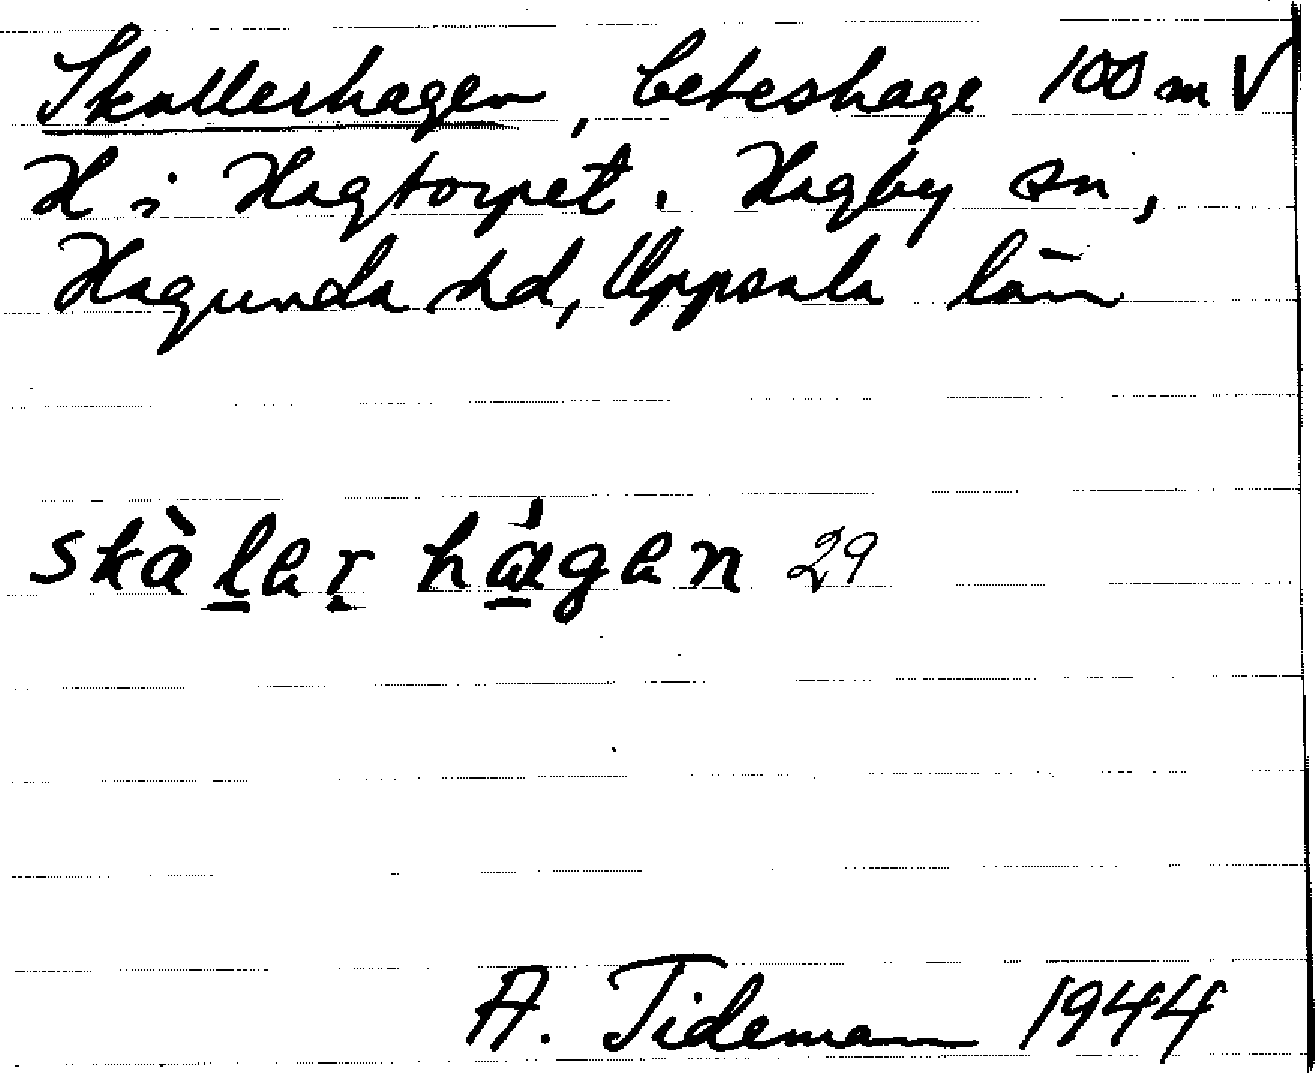 Skallerhagen, beteshage 100 m V
H i Hagtorpet. Hagby sn,
Hagunda hd, Uppsala län
skàl̠er̠ hág̠en 29
A. Tideman 1944